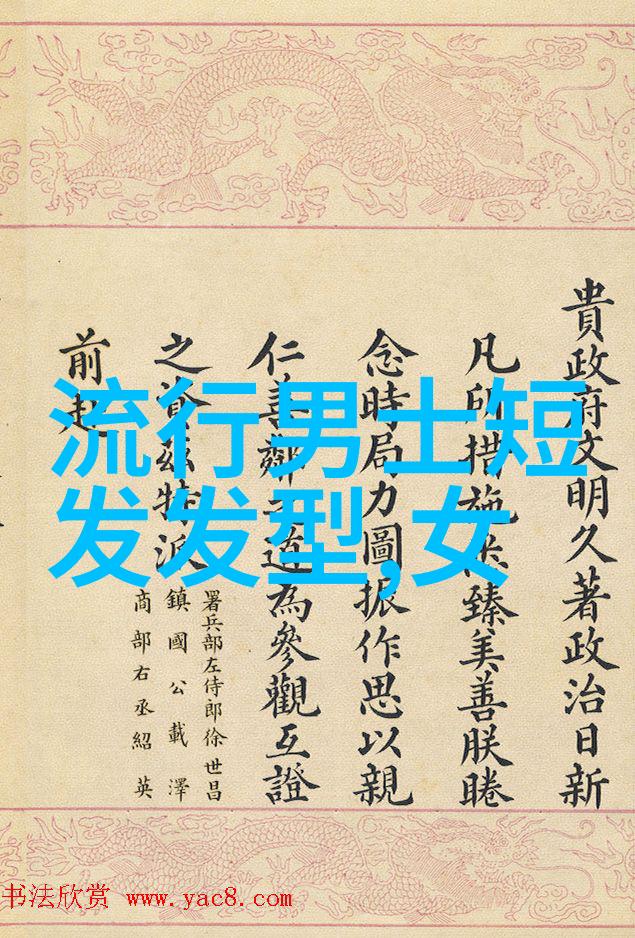 貴政府文明久著政治日新
凡所措施臻美善朕睠
念時局力圖振作思以親
仁善鄰之道為參觀互證
之資茲特派
署兵部左侍郎徐世昌
鎮國公載澤
商部右丞紹英
前赴
流行男士短
发发型,女
书法欣赏 www.yac8.com